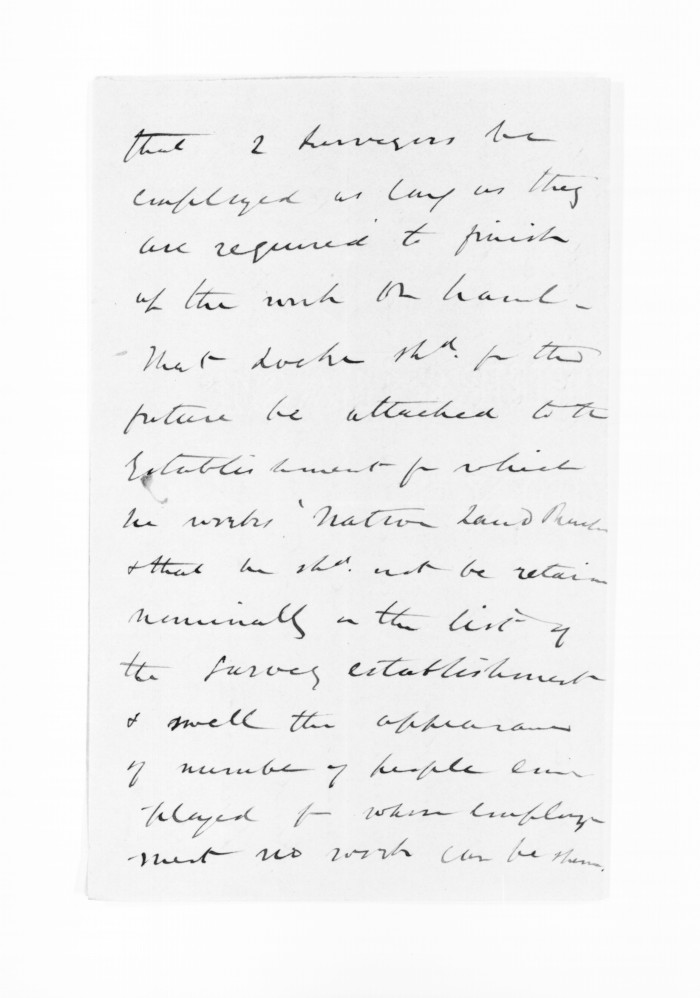 that 2 Surveyors be
employed as long as they
are required to finish
up the work on hand –
That Locke shd. for the
future be attached to the
Establishment for which
he works 'Native Land Purchase
& that he shd. not be retained
nominally on the list of
the Survey establishment
& swell the appearance
of number of people em
ployed for whose employ
ment no work can be shewn.